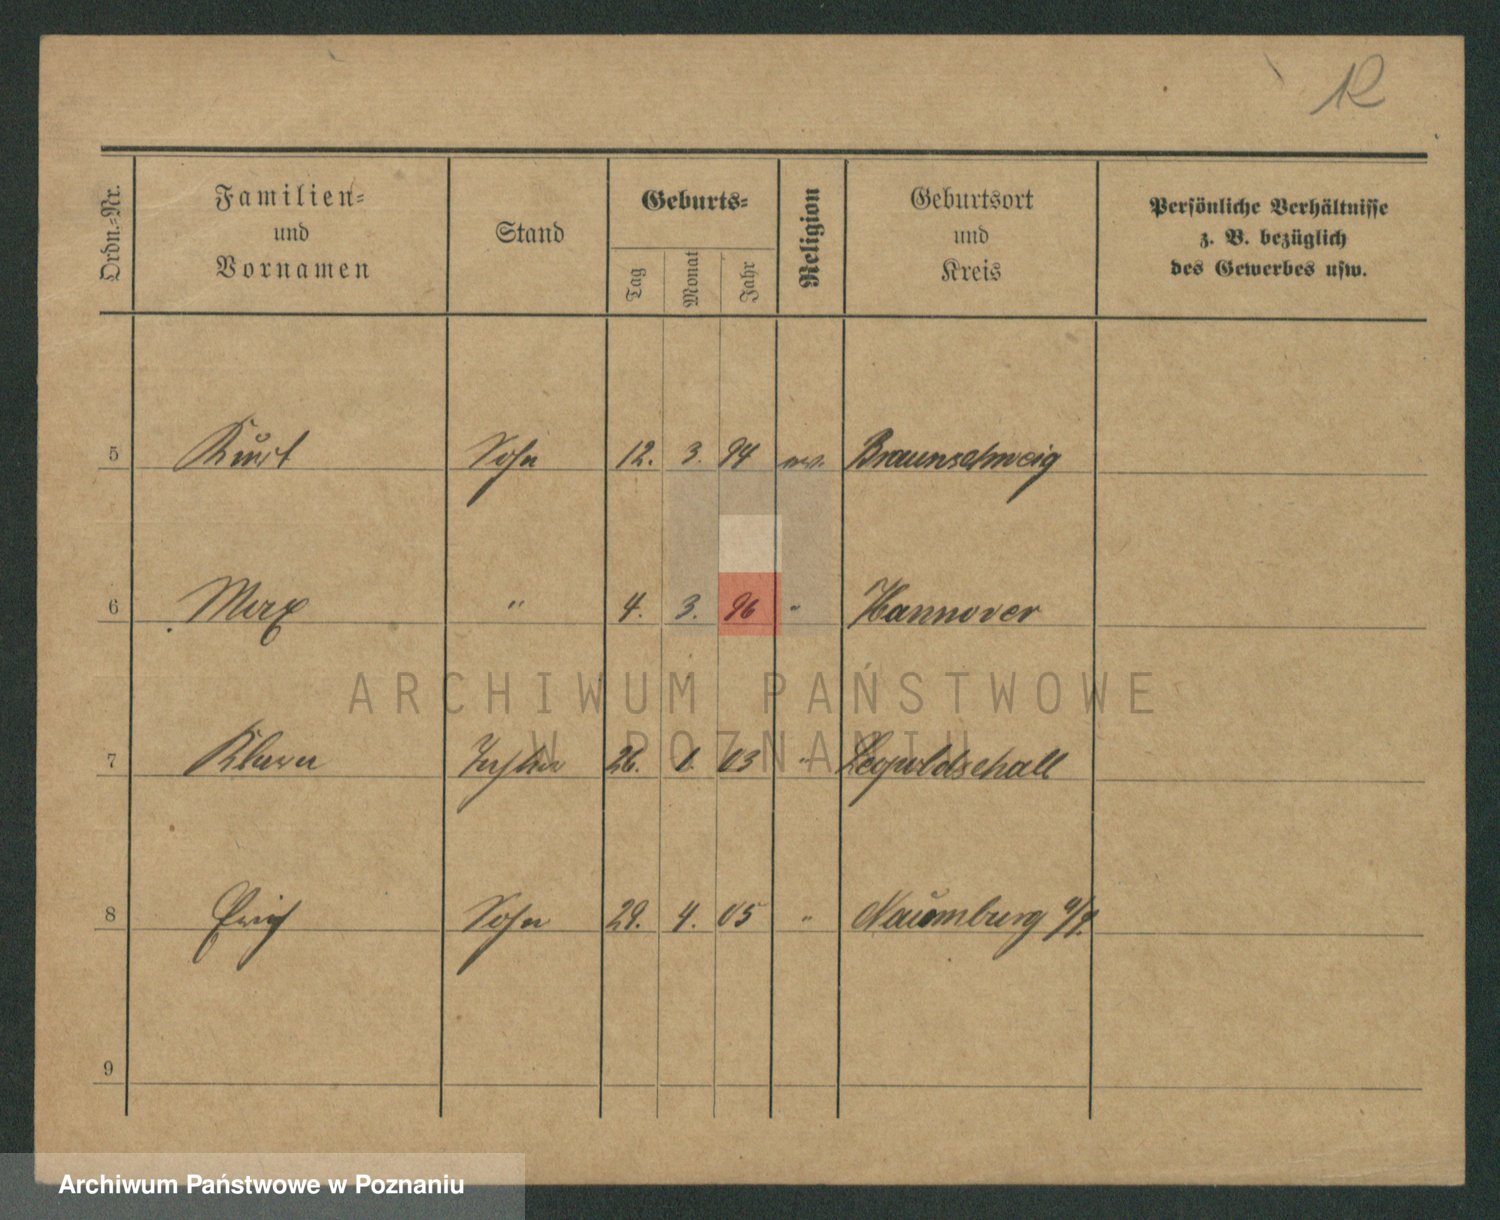 12
Ordn.-Nr.
Familien-
und
Vornamen
Stand
Geburts-
Tag
Monat
Jahr
Religion
Geburtsort
und
Kreis
Persönliche Verhältnisse
z. B. bezüglich
des Gewerbes usw.
5 Kurt Sohn 12. 3. 94 ev. Braunschweig
6 Max " 4. 3. 96 " Hannover
ARCHIWUM PAŃSTWOWE
W POZNANIU
7 Klara Tochter 26. 1. 03 " Leopoldschall
8 Erich Sohn 29. 4. 05 " Naumburg a/S.
9
Archiwum Państwowe w Poznaniu